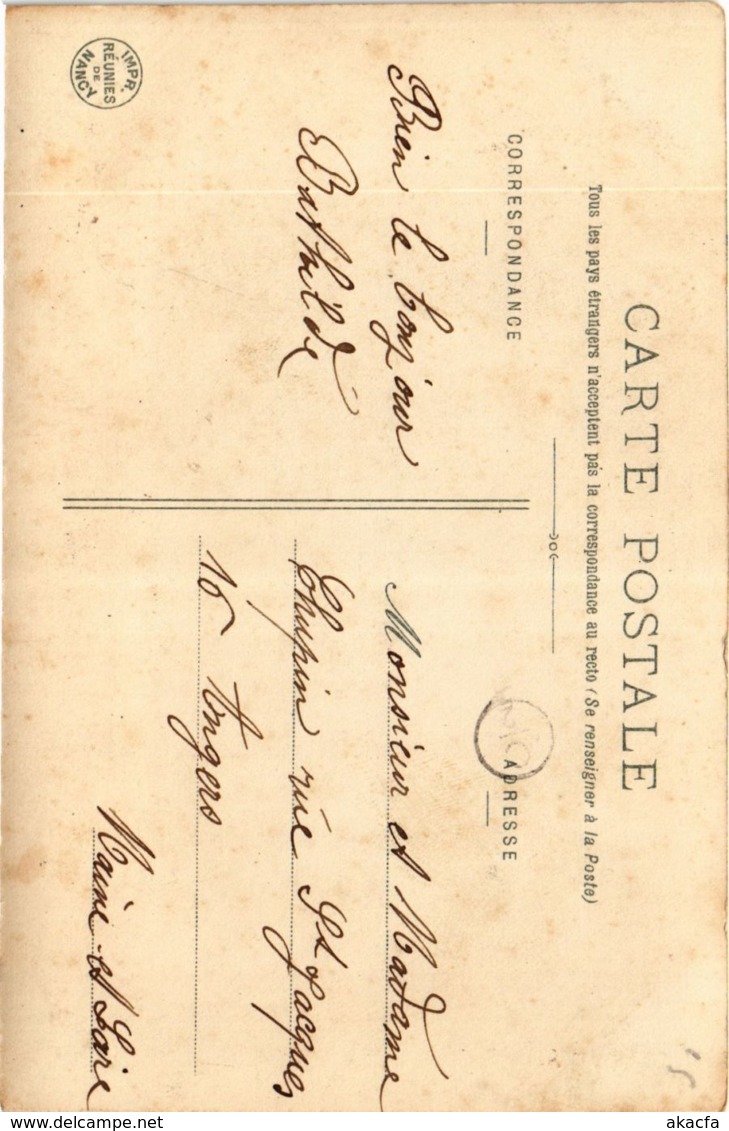 CARTE POSTALE
Tous les pays étrangers n'acceptent pas la correspondance au recto (Se renseigner à la Poste)
CORRESPONDANCE
Bien le bonjour
Bathilde
IMPR.
RÉUNIES
DE
NANCY
ADRESSE
Monsieur et Madame
Chupin rue St Jacques
16 Angers
Maine et Loire
akacfa
delcampe.net